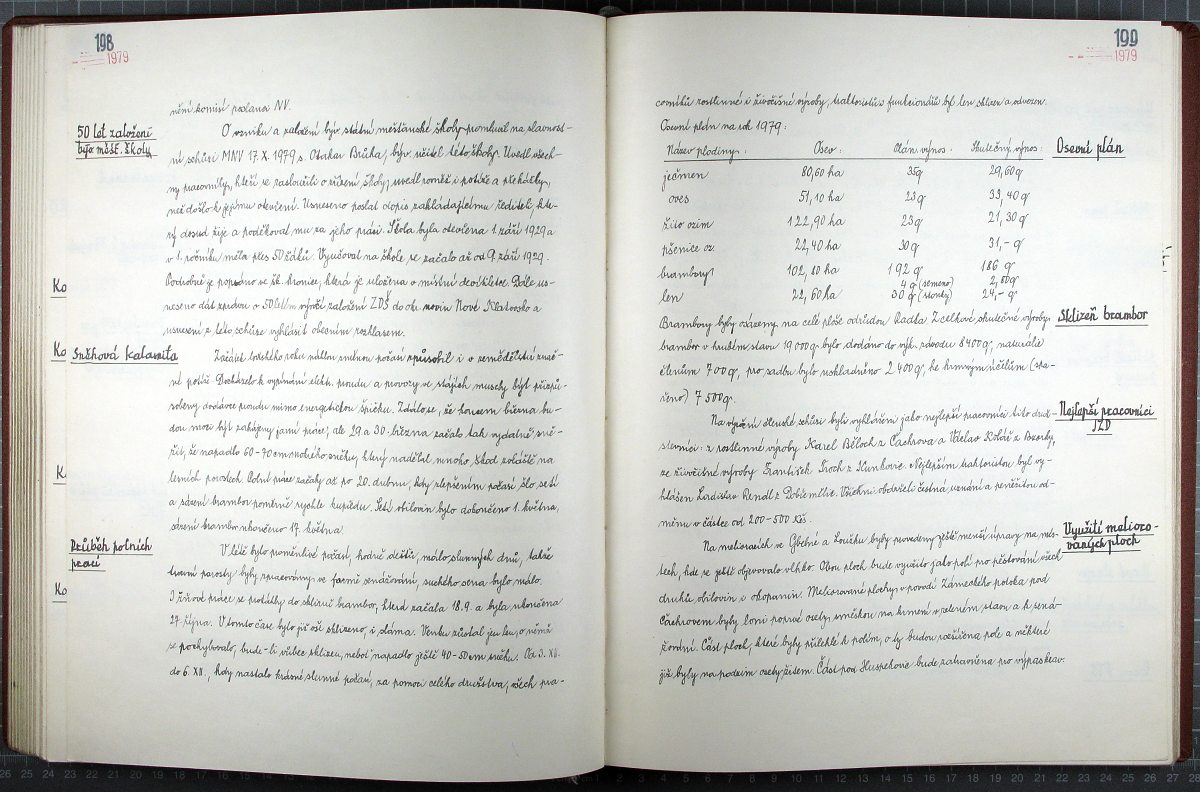 198
1979
nění komisí poslána NV.
50 let založení
býv. měšť. školy
O vzniku a založení býv. státní měšťanské školy promluvil na slavnost-
ní schůzi MNV 17. X. 1979 s. Otakar Brůha, býv. učitel této školy. Uvedl všech-
ny pracovníky, kteří se zasloužili o zřízení školy, uvedl rovněž i potíže a překážky,
než došlo k jejímu otevření. Usneseno poslat dopis zakládajícímu řediteli, kte-
rý dosud žije a poděkovat mu za jeho práci. Škola byla otevřena 1. září 1929 a
v 1. ročníku měla přes 50 žáků. Vyučovat na škole se začalo až od 9. září 1929.
Podrobně je popsáno ve šk. kronice, která je uložena v místní devítiletce. Dále us-
neseno dát zprávu o 50letém výročí založení ZDŠ do okr. novin Nové Klatovsko a
usnesení z této schůze vyhlásit obecním rozhlasem.
Sněhová kalamita
Začátek loňského roku náhlou změnou počasí způsobil i v zemědělství znač-
né potíže. Docházelo k vypínání elektr. proudu a provozy ve stájích musely být přizpů-
sobeny dodávce proudu mimo energetickou špičku. Zdálo se, že koncem března bu-
dou moci být zahájeny jarní práce, ale 29. a 30. března začalo tak vydatně sně-
žit, že napadlo 60-70 cm mokrého sněhu, který nadělal mnoho škod zvláště na
lesních porostech. Polní práce začaly až po 20. dubnu, kdy zlepšením počasí šlo setí
a sázení brambor poměrně rychle kupředu. Setí obilovin bylo dokončeno 1. května,
sázení brambor ukončeno 17. května.
Průběh polních
prací
V létě bylo proměnlivé počasí, hodně deště, málo slunných dnů, takže
travní porosty byly zpracovány ve formě senážování, suchého sena bylo málo.
I žňové práce se protáhly do sklizně brambor, která začala 18.9. a byla ukončena
27. října. V tomto čase bylo již vše sklizeno, i sláma. Venku zůstal jen len, o němž
se pochybovalo, bude-li vůbec sklizen, neboť napadlo ještě 40-50 cm sněhu. Od 3. XII.
do 6. XII., kdy nastalo krásné slunné počasí, za pomoci celého družstva, všech pra-
Ko
Ko
K
Ko
199
1979
covníků rostlinné i živočišné výroby, traktoristů a funkcionářů byl len sklizen a odvezen.
Osevní plán
Osevní plán na rok 1979:
Název plodiny: Osev: Plán. výnos: Skutečný výnos:
ječmen 80,60 ha 35 q 29,60 q
oves 51,10 ha 25 q 33,40 q
žito ozim 122,90 ha 25 q 21,30 q
pšenice oz. 22,40 ha 30 q 31,- q
brambory 102,80 ha 192 q 186 q
4 q (semeno) 2,80 q
len 22,60 ha 30 q (stonky) 24,- q
Sklizeň brambor
Brambory byly sázeny na celé ploše odrůdou Radka. Z celkové skutečné výroby
brambor v hrubém stavu 19 000 q bylo dodáno do výk. závodu 8400 q, naturálie
členům 700 q, pro sadbu bylo uskladněno 2 400 q, ke krmným účelům (spa-
řeno) 7 500 q.
Nejlepší pracovníci
JZD
Na výroční členské schůzi byli vyhlášeni jako nejlepší pracovníci tito druž-
stevníci: z rostlinné výroby Karel Běloch z Čachrova a Václav Kolář z Bezerky,
ze živočišné výroby František Sroch z Kunkovic. Nejlepším traktoristou byl vy-
hlášen Ladislav Rendl z Dobřemělic. Všichni obdrželi čestná uznání a peněžitou od-
měnu v částce od 200-500 Kčs.
Využití meliozo-
vaných ploch
Na melioracích ve Gbelné a Loučku byly provedeny ještě menší úpravy na mís-
tech, kde se ještě objevovalo vlhko. Obou ploch bude využito jako polí pro pěstování všech
druhů obilovin i okopanin. Meliorované plochy v povodí Zámeckého potoka pod
Čachrovem byly loni poprvé osety směskou na krmení v zeleném stavu a k sená-
žování. Část ploch, které byly přilehlé k polím, o ty budou rozšířena pole a některé
již byly na podzim osety žitem. Část pod Huspekovic bude zatravněna pro výpas krav.